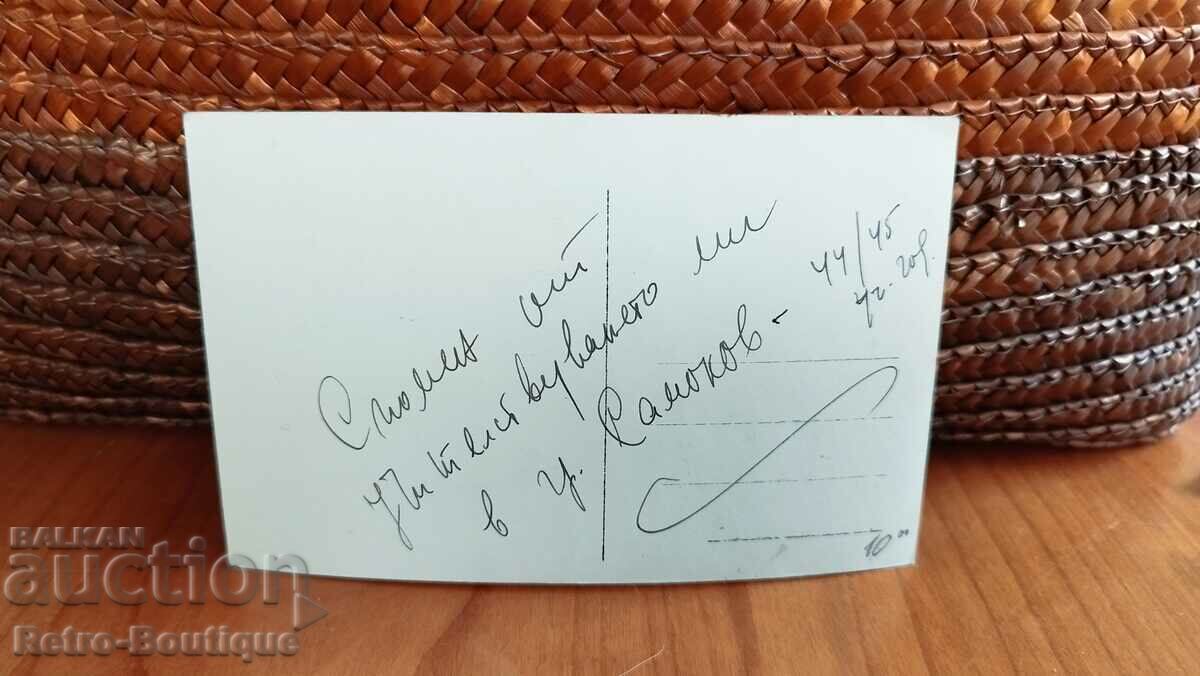 Спомен от
учителствуването ми
в гр. Самоков -
44/45
уч. год.
10⁰⁰
BALKAN
auction
Retro-Boutique